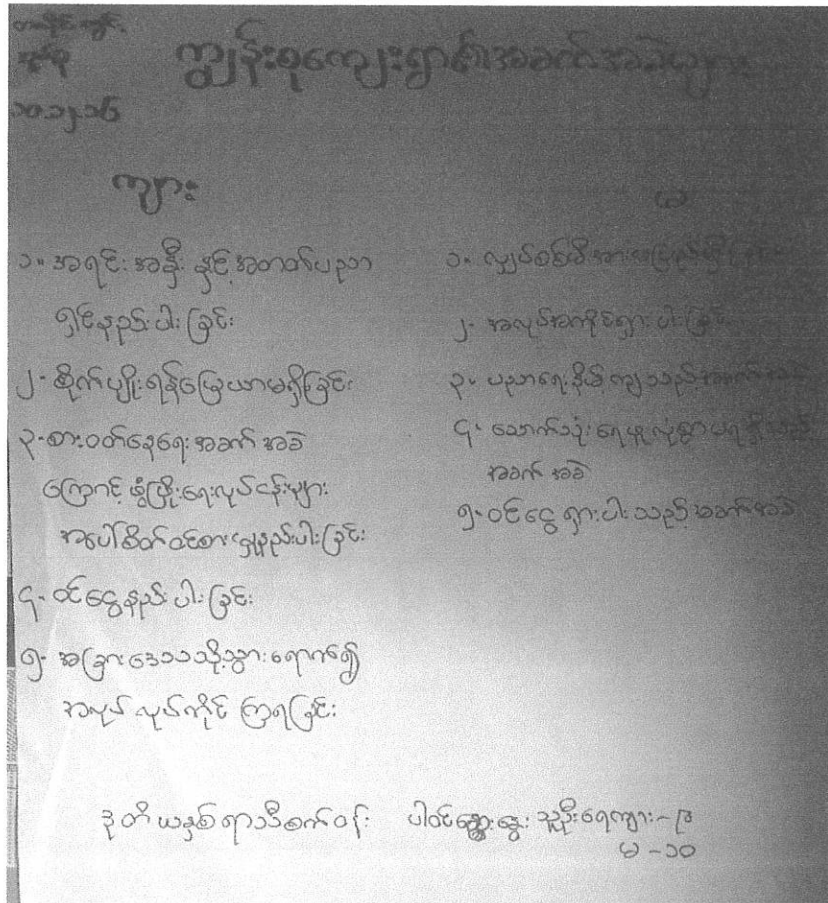 ကျွန်းစုကျေးရွာ၏အခက်အခဲများ
ကျား
၁။ အရင်းအနှီး နှင့် အတတ်ပညာ
ရှင်နည်းပါးခြင်း
၂- စိုက်ပျိုးရန်မြေယာမရှိခြင်း
၃- စားဝတ်နေရေးအခက်အခဲ
ကြောင့် ဖွံ့ဖြိုးရေးလုပ်ငန်းများ
အပေါ်စိတ်ဝင်စားမှုနည်းပါးခြင်း
၄- ဝင်ငွေနည်းပါးခြင်း
၅- အခြားဒေသသို့သွားရောက်၍
အလုပ်လုပ်ကိုင်ကြရခြင်း
မ
၁- လျှပ်စစ်မီးအား
၂- အလုပ်အကိုင်ရှားပါးခြင်း
၃- ပညာရေးနိမ့်ကျသည့်အခက်အခဲ
၄- သောက်သုံးရေ
အခက်အခဲ
၅- ဝင်ငွေရှားပါးသည့်အခက်အခဲ
ဒုတိယနှစ်ရာသီစက်ဝန်း ပါဝင်ဆွေးနွေးသူဦးရေကျား-၉
မ -၁၀